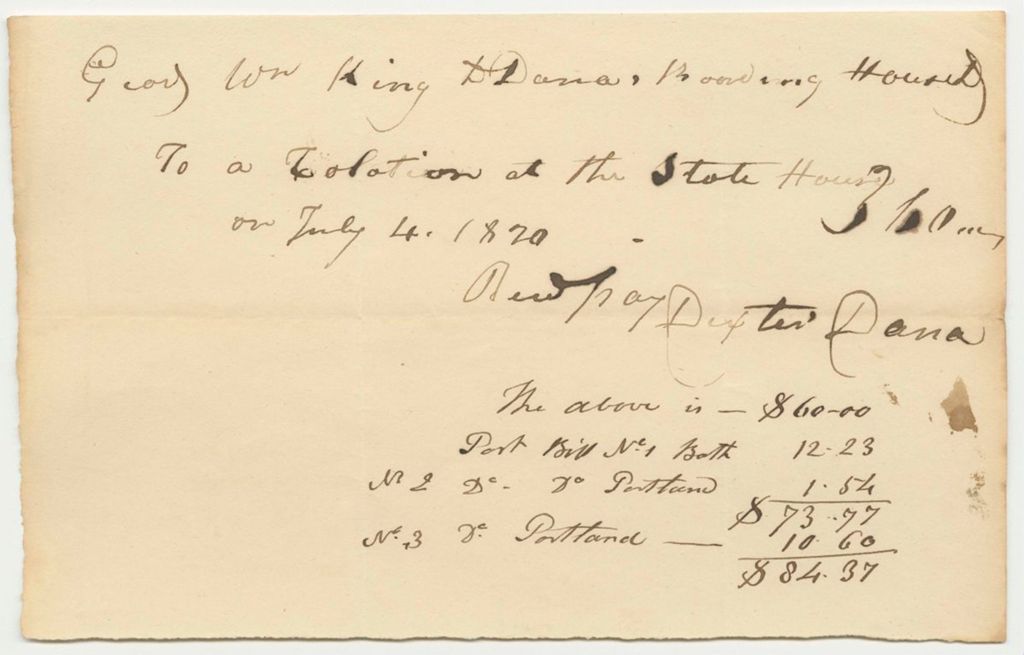 Wm King D Dana, Boarding House
To a Colation at the State House
on July 4. 1820 - 360
Recd pay Dexter Dana
The above is — $60-00
Part Bill No. 1 Bath 12.23
No 2 Do. Do Portland 1.54
$73.77
No. 3 Do. Portland — 10.60
$84.37